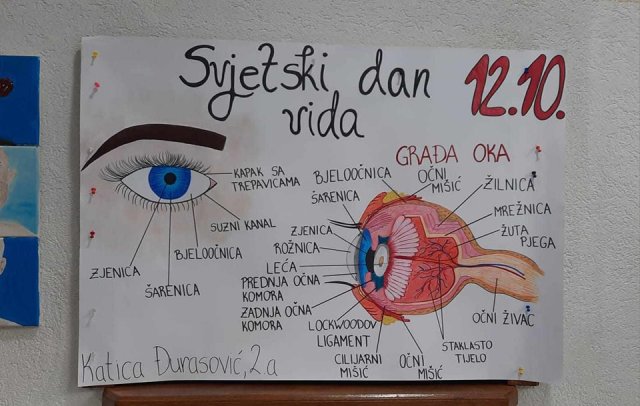 Svjetski dan
vida
12.10.
GRAĐA OKA
KAPAK SA
TREPAVICAMA
SUZNI KANAL
BJELOOČNICA
ŠARENICA
ZJENICA
BJELOOČNICA
OČNI
MIŠIĆ
ŽILNICA
MREŽNICA
ŽUTA
PJEGA
OČNI ŽIVAC
STAKLASTO
TIJELO
OČNI
MIŠIĆ
CILIJARNI
MIŠIĆ
LOCKWOODOV
LIGAMENT
ZADNJA OČNA
KOMORA
PREDNJA OČNA
KOMORA
LEĆA
ROŽNICA
ZJENICA
ŠARENICA
Katica Đurasović, 2.a